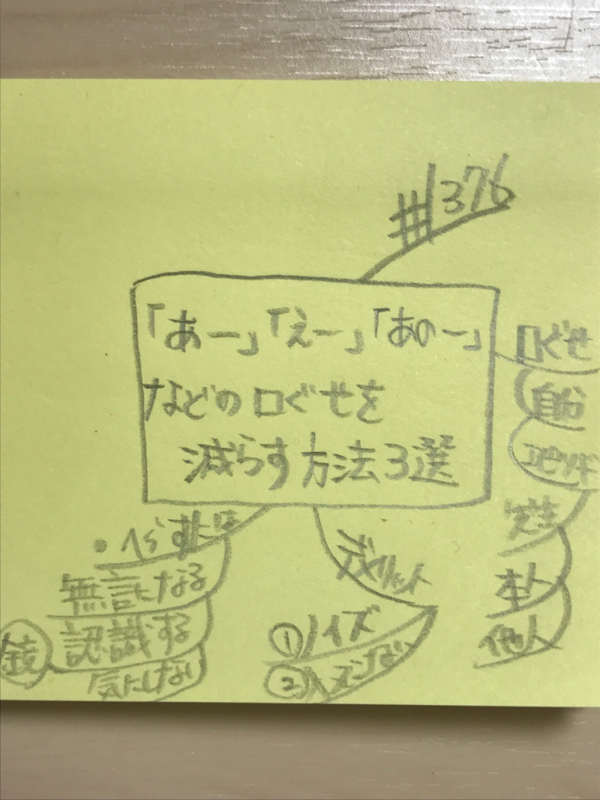 #1376
「あー」「えー」「あのー」
などの口ぐせを
減らす方法3選
口ぐせ
自分
エピソード
本人
他人
デメリット
①ノイズ
②
・へらすには
無言になる
認識する
気にしない